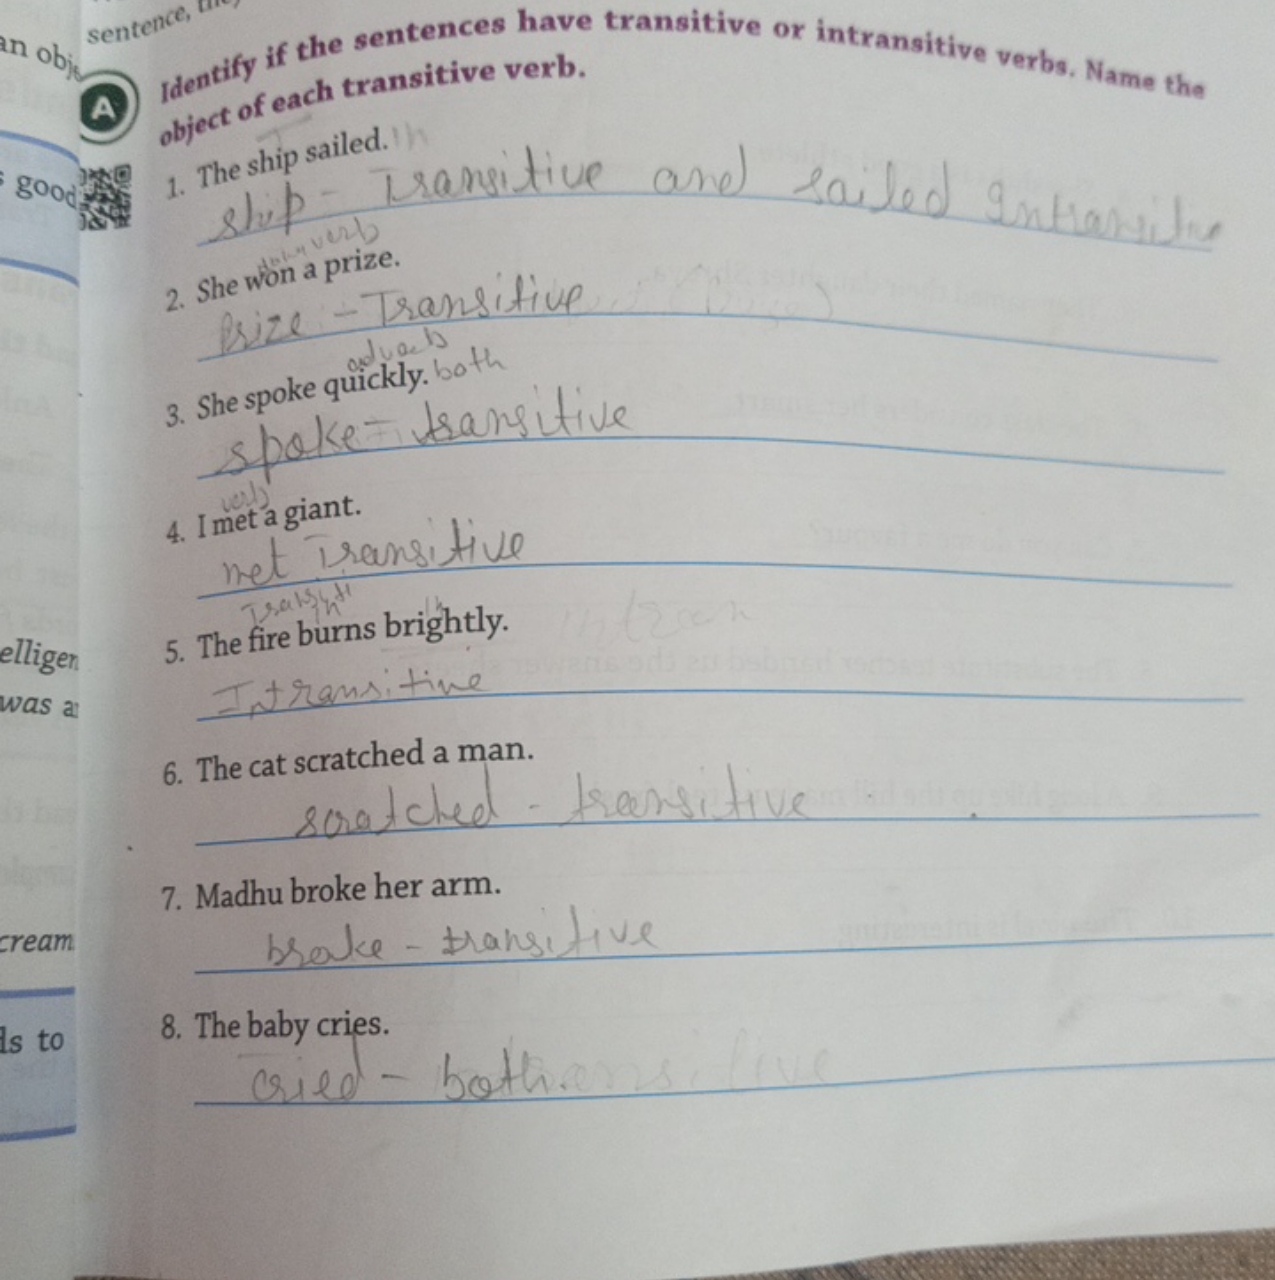 sentence,
an obje
A
Identify if the sentences have transitive or intransitive verbs. Name the
object of each transitive verb.
good
1. The ship sailed. In
ship - Transitive and sailed Intransitive
verb
2. She won a prize.
Prize - Transitive
adverb
3. She spoke quickly. both
spoke - transitive
verb
4. I met a giant.
met Transitive
5. The fire burns brightly.
Intransitive
elligen
was a
6. The cat scratched a man.
scratched - transitive
7. Madhu broke her arm.
cream
broke - transitive
8. The baby cries.
ls to
cried - both